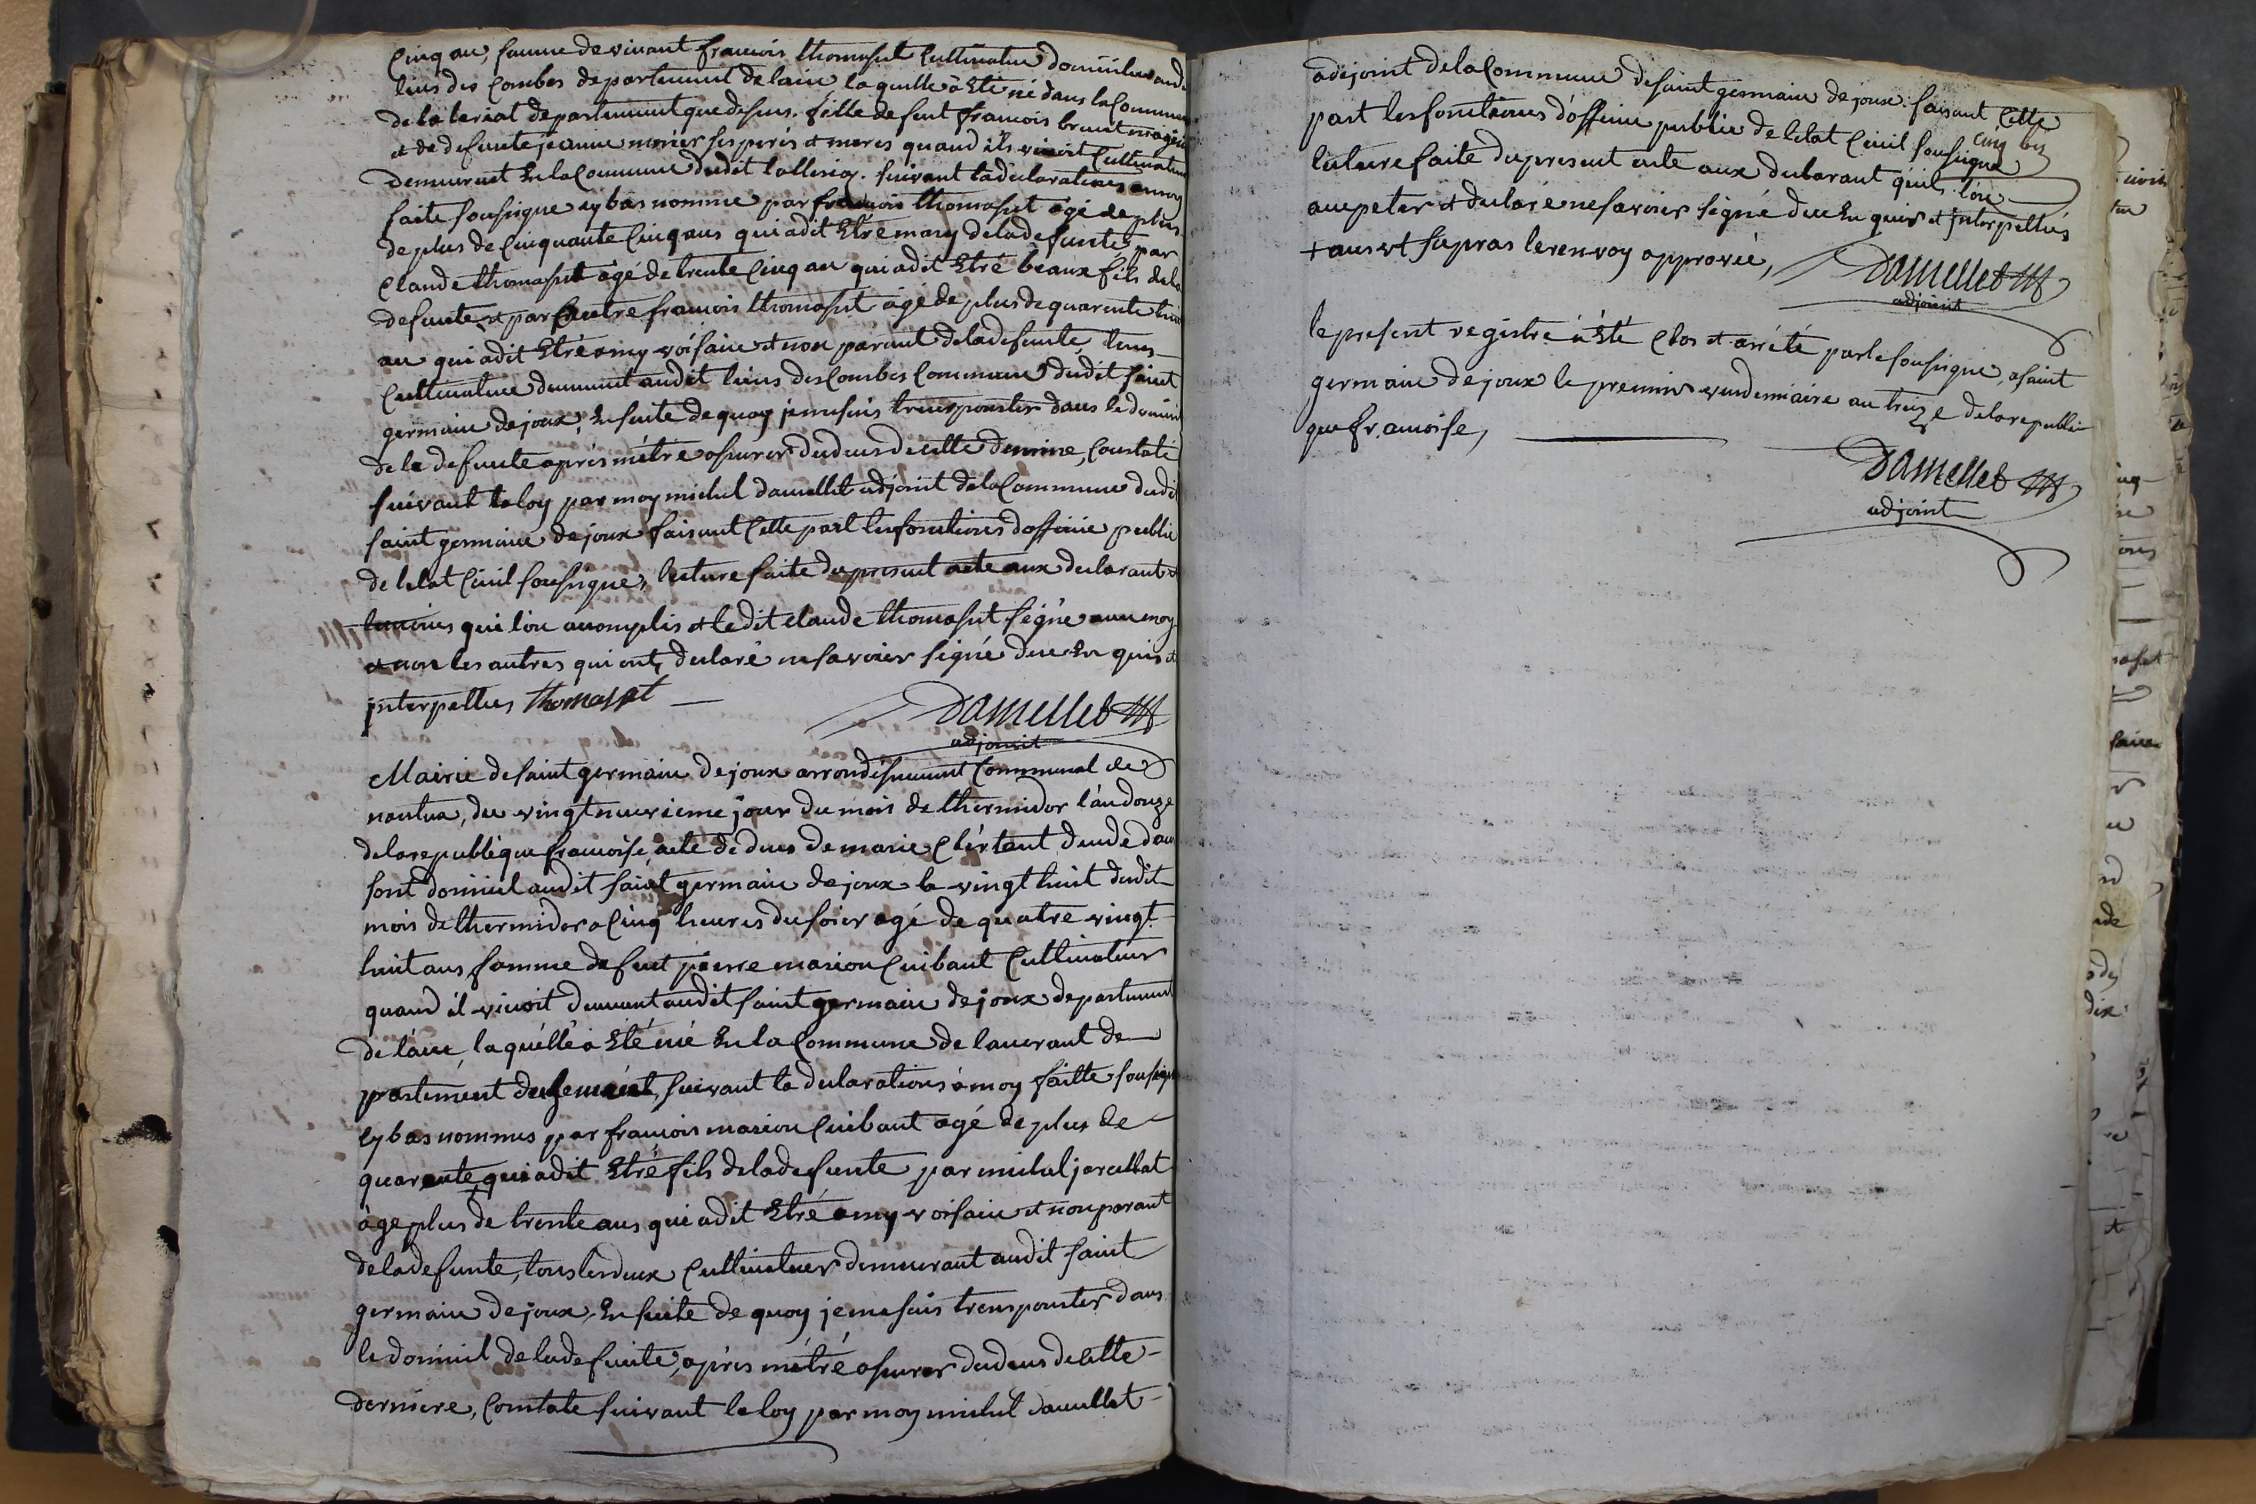 Cinq an, famme de vivant francois thomaset Cultivateur domicilié aud
lieus des Combes departement de lain, la quelle à Eté né dans la Commune
de lalleriat departement que desus. fille de feut francois
et de defunte jeanne ses perés et meres quand ils vivoit Cultivateur
demeurent En la Commune dudit lalleriaz. suivant la declarations a moy
faite sousigne cy bas nomme par francois thomaset agé de plus
de plus de Cinquante Cinq ans qui adit Etre mary de la defunte par
Claude thomaset agé de trente Cinq an qui adit Etré beaux fils de la
defunte, et par Contre francois thomaset agé de plus de quarente huit
an qui adit Etré amy voisain et non parant de la defunte, tous
Cultivateur demeurent audit lieus des Combes Commune dudit saint
germain de joux, En suite de quoy je me suis transporter dans le domicil
de la defunte aprés métré assurer du deus de cette derniere, Constaté
suivant la loy par moy michel damellet adjoint de la Commune dudit
saint germain de joux faisant Cette part les fonctions dofficie public
de letat Civil sousigne, lecture faite du present acte aux declarant et
temoins qui lon acomplis et ledit claude thomaset signé avec moy
et non les autres qui ont declaré ne savoier signé due En quis et
jnterpelles thomasset
Damellet
adjoint
Mairie de saint germain de joux arrondisement Communal de
nantua, du vingt neuvieme jour du mois de thermidor l'an douze
de la republique francoise, acte de deces de marie
son domicil audit saint germain de joux le vingt huit dudit
mois de thermidor a Cinq heures du soier agé de quatre vingt
huit ans, famme de feut pierre marion Cuibaut Cultivateur
quand il vivoit demeurant audit saint germain de joux departement
de l'ain, laquélle a Eté né En la Commune de laverant de
partement suivant la declarations à moy faitte sousigné
cy bas nommes par francois marion Cuibaut agé de plus de
quarente, qui adit Etré fils de la defunte par michel
age plus de trente ans qui adit Etré amy voisain et non parant
de la defunte, tous les deux Cultivateur demeurant audit saint
germain de joux, En suite de quoy je me suis transporter dans
le domicil de la defunte, aprés métré assurer du deus de cette
derniere, Constate suivant la loy par moy michel damellet
adejoint de la Commune de saint germain de joux. faisant Cette
cinq bis
part les fonctions d'officie public de letat Civil sousigne
lecture faite du present acte aux declarant quils lon
accepeter et declaré ne savoier signé due En quis et jnterpellés
+ ans et supras le renvoy approvée,
Damellet
adjoint
le present registre à Eté Clos et arété par le sousigne, a saint
germain de joux le premier vendemiaire an treize de la republi
que francoise,
Damellet
adjoint